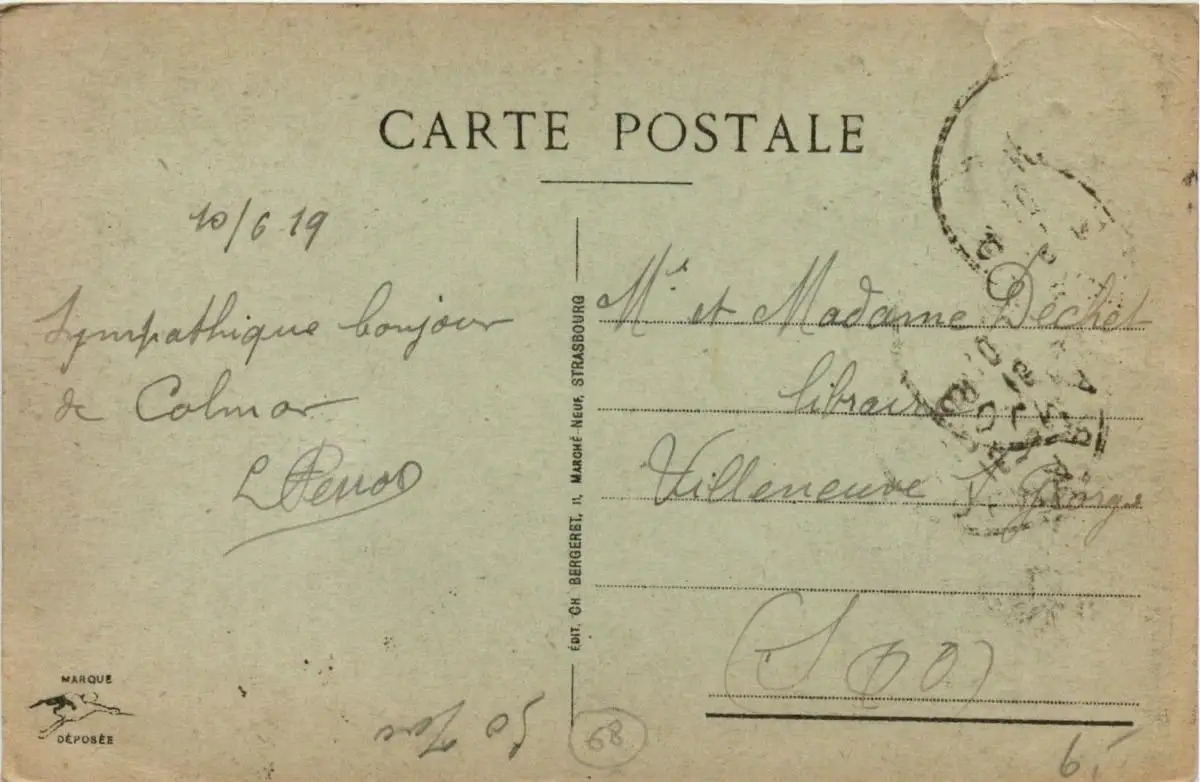 CARTE POSTALE
10/6 19
Sympathique bonjour
de Colmar
L Perrod
Mr et Madame Déchet
libraire
Villeneuve St Georges
(S & O)
ÉDIT. CH. BERGERET, 11, MARCHÉ-NEUF, STRASBOURG
MARQUE
DÉPOSÉE
68
6,-